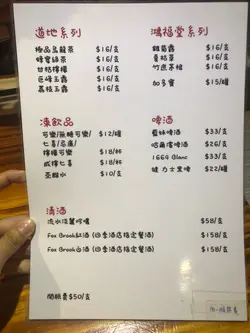 道地系列
極品烏龍茶 $16/支
蜂蜜綠茶 $16/支
甘桔檸檬 $16/支
巨峰玉露 $16/支
荔枝玉露 $16/支
鴻福堂系列
雞骨露 $16/支
夏枯草 $16/支
竹蔗茅根 $16/支
加多寶 $15/罐
凍飲品
可樂/無糖可樂/ $12/罐
七喜/忌廉/
檸檬可樂 $18/杯
咸檸七喜 $18/杯
蒸餾水 $10/支
啤酒
藍妹啤酒 $33/支
哈爾濱啤酒 $26/支
1664 Blanc $33/支
健力士黑啤 $22/支
清酒
$58/支
Fox Brook紅酒 (四季酒店指定餐酒) $158/支
Fox Brook白酒 (四季酒店指定餐酒) $158/支
開瓶費$50/支